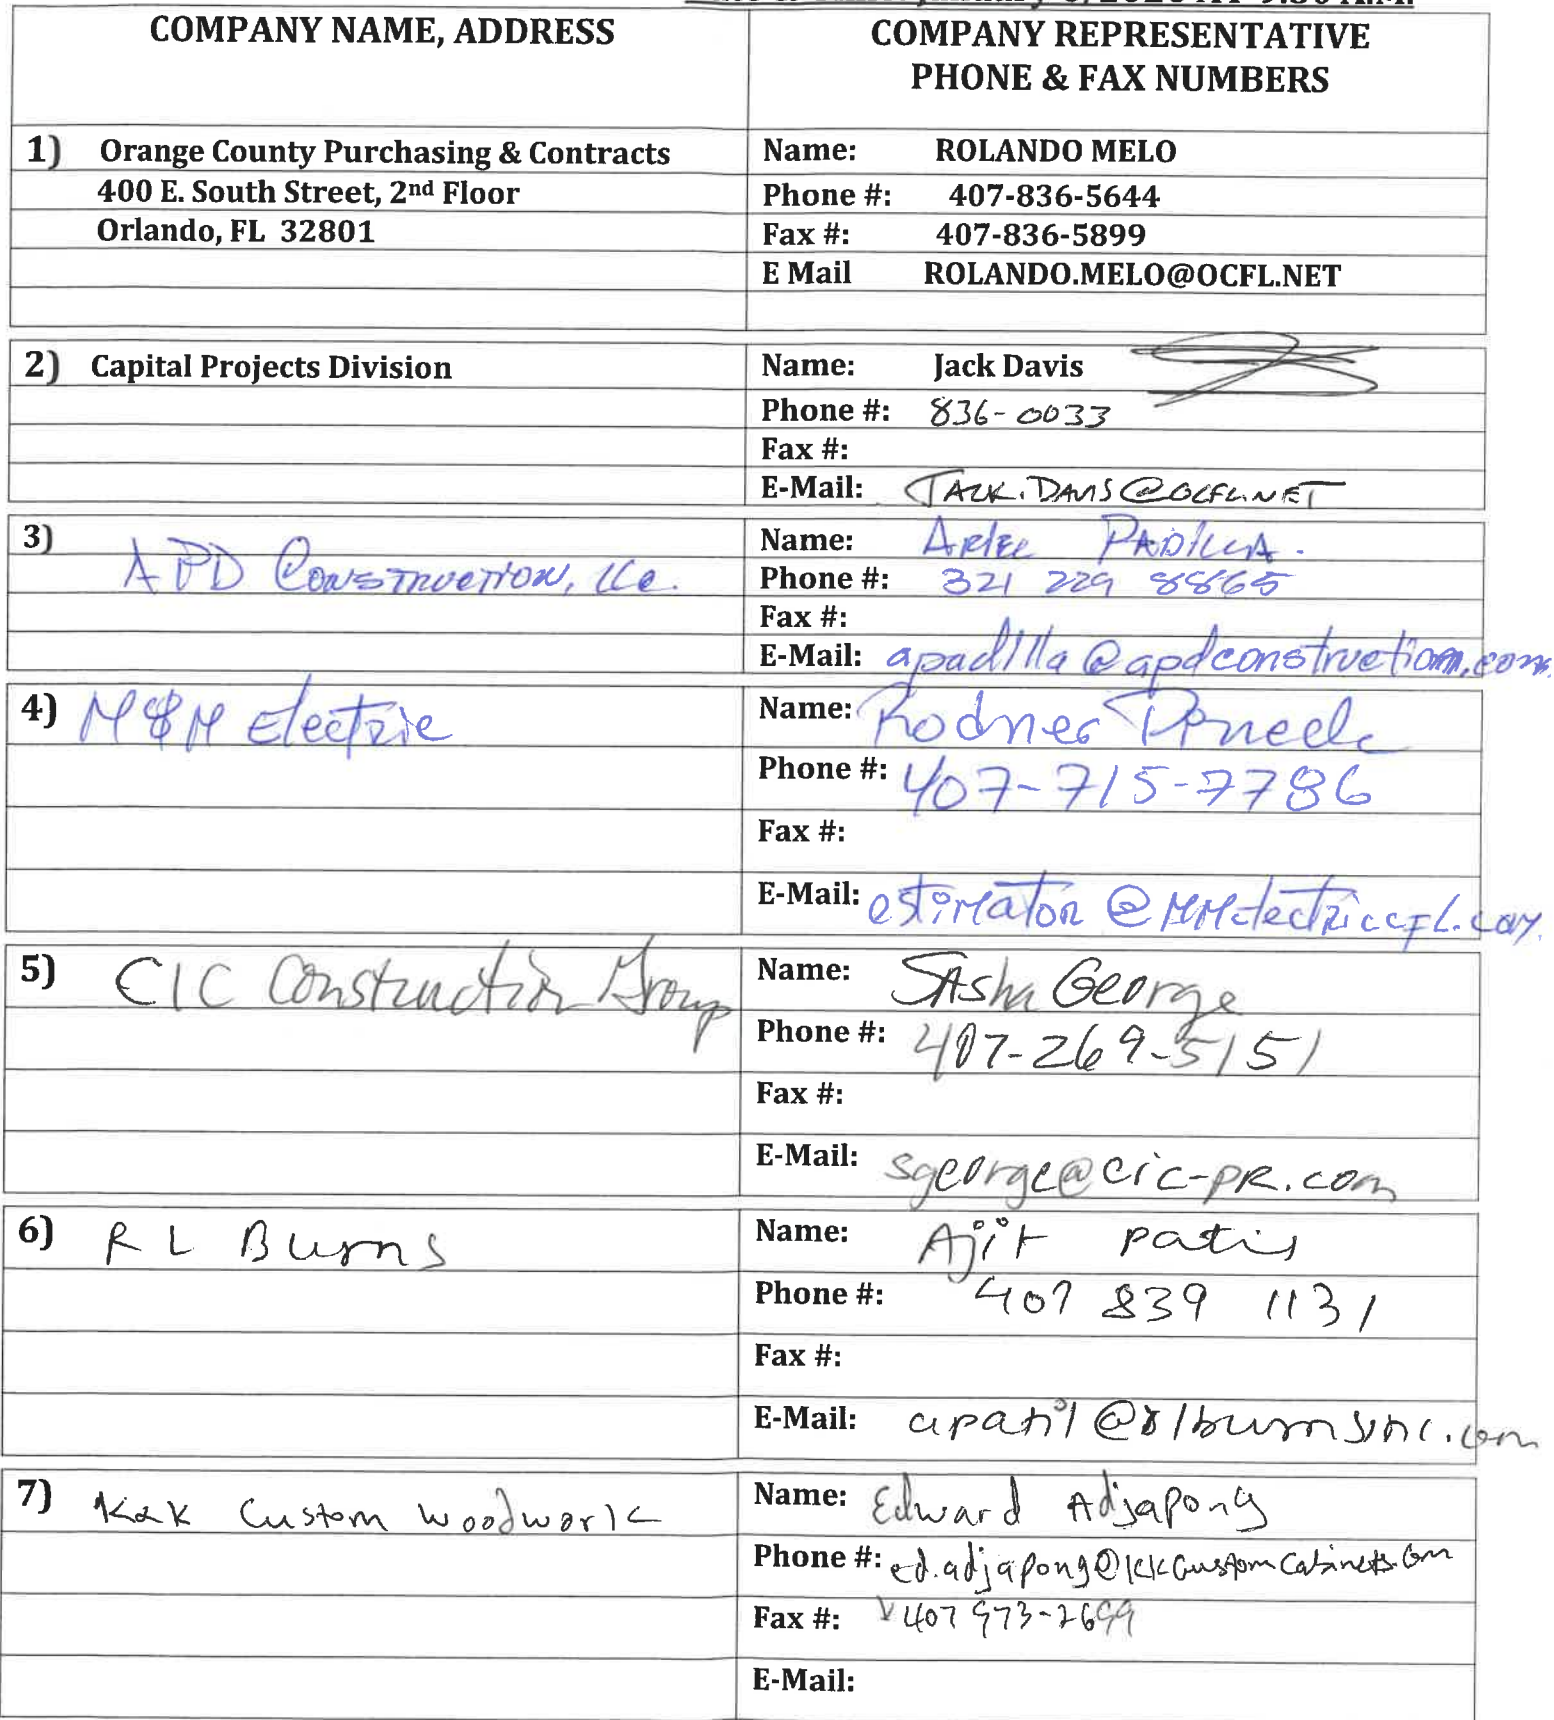 COMPANY NAME, ADDRESS
COMPANY REPRESENTATIVE
PHONE & FAX NUMBERS
1) Orange County Purchasing & Contracts
400 E. South Street, 2nd Floor
Orlando, FL 32801
Name: ROLANDO MELO
Phone #: 407-836-5644
Fax #: 407-836-5899
E Mail ROLANDO.MELO@OCFL.NET
2) Capital Projects Division
Name: Jack Davis
Phone #: 836-0033
Fax #:
E-Mail: JACK.DAVIS@OCFL.NET
3) APD Construction, LLC.
Name: Ariel PADILLA.
Phone #: 321 229 8865
Fax #:
E-Mail: apadilla@apdconstruction.com
4) M&M Electric
Name: Rodner
Phone #: 407-715-7786
Fax #:
E-Mail: estimator@MMelectriccFL.com
5) CIC Construction Group
Name: Sasha George
Phone #: 407-269-5151
Fax #:
E-Mail: sgeorge@cic-pr.com
6) R L Burns
Name: Ajit Patil
Phone #: 407 839 1131
Fax #:
E-Mail: apatil@rlburnsinc.com
7) K&K Custom Woodwork
Name: Edward Adjapong
Phone #: ed.adjapong@kkcustomcabinets.com
Fax #: 407 973-2699
E-Mail: